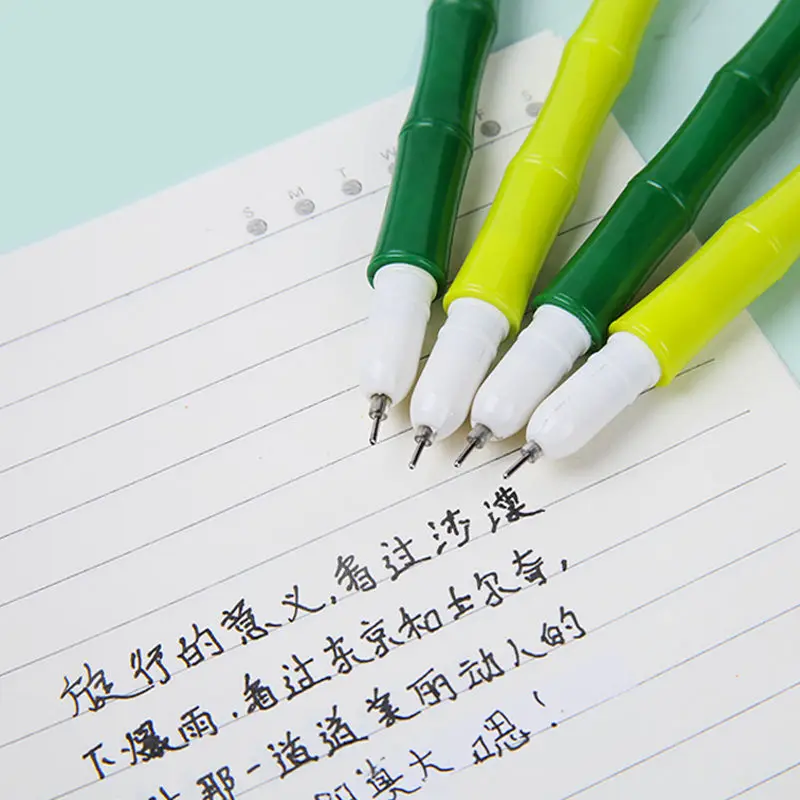 S M T W F S
旅行的意义,看过沙漠
下爆雨,看过东京和土尔奇,
那一道道美丽动人的
莫大 嗯!